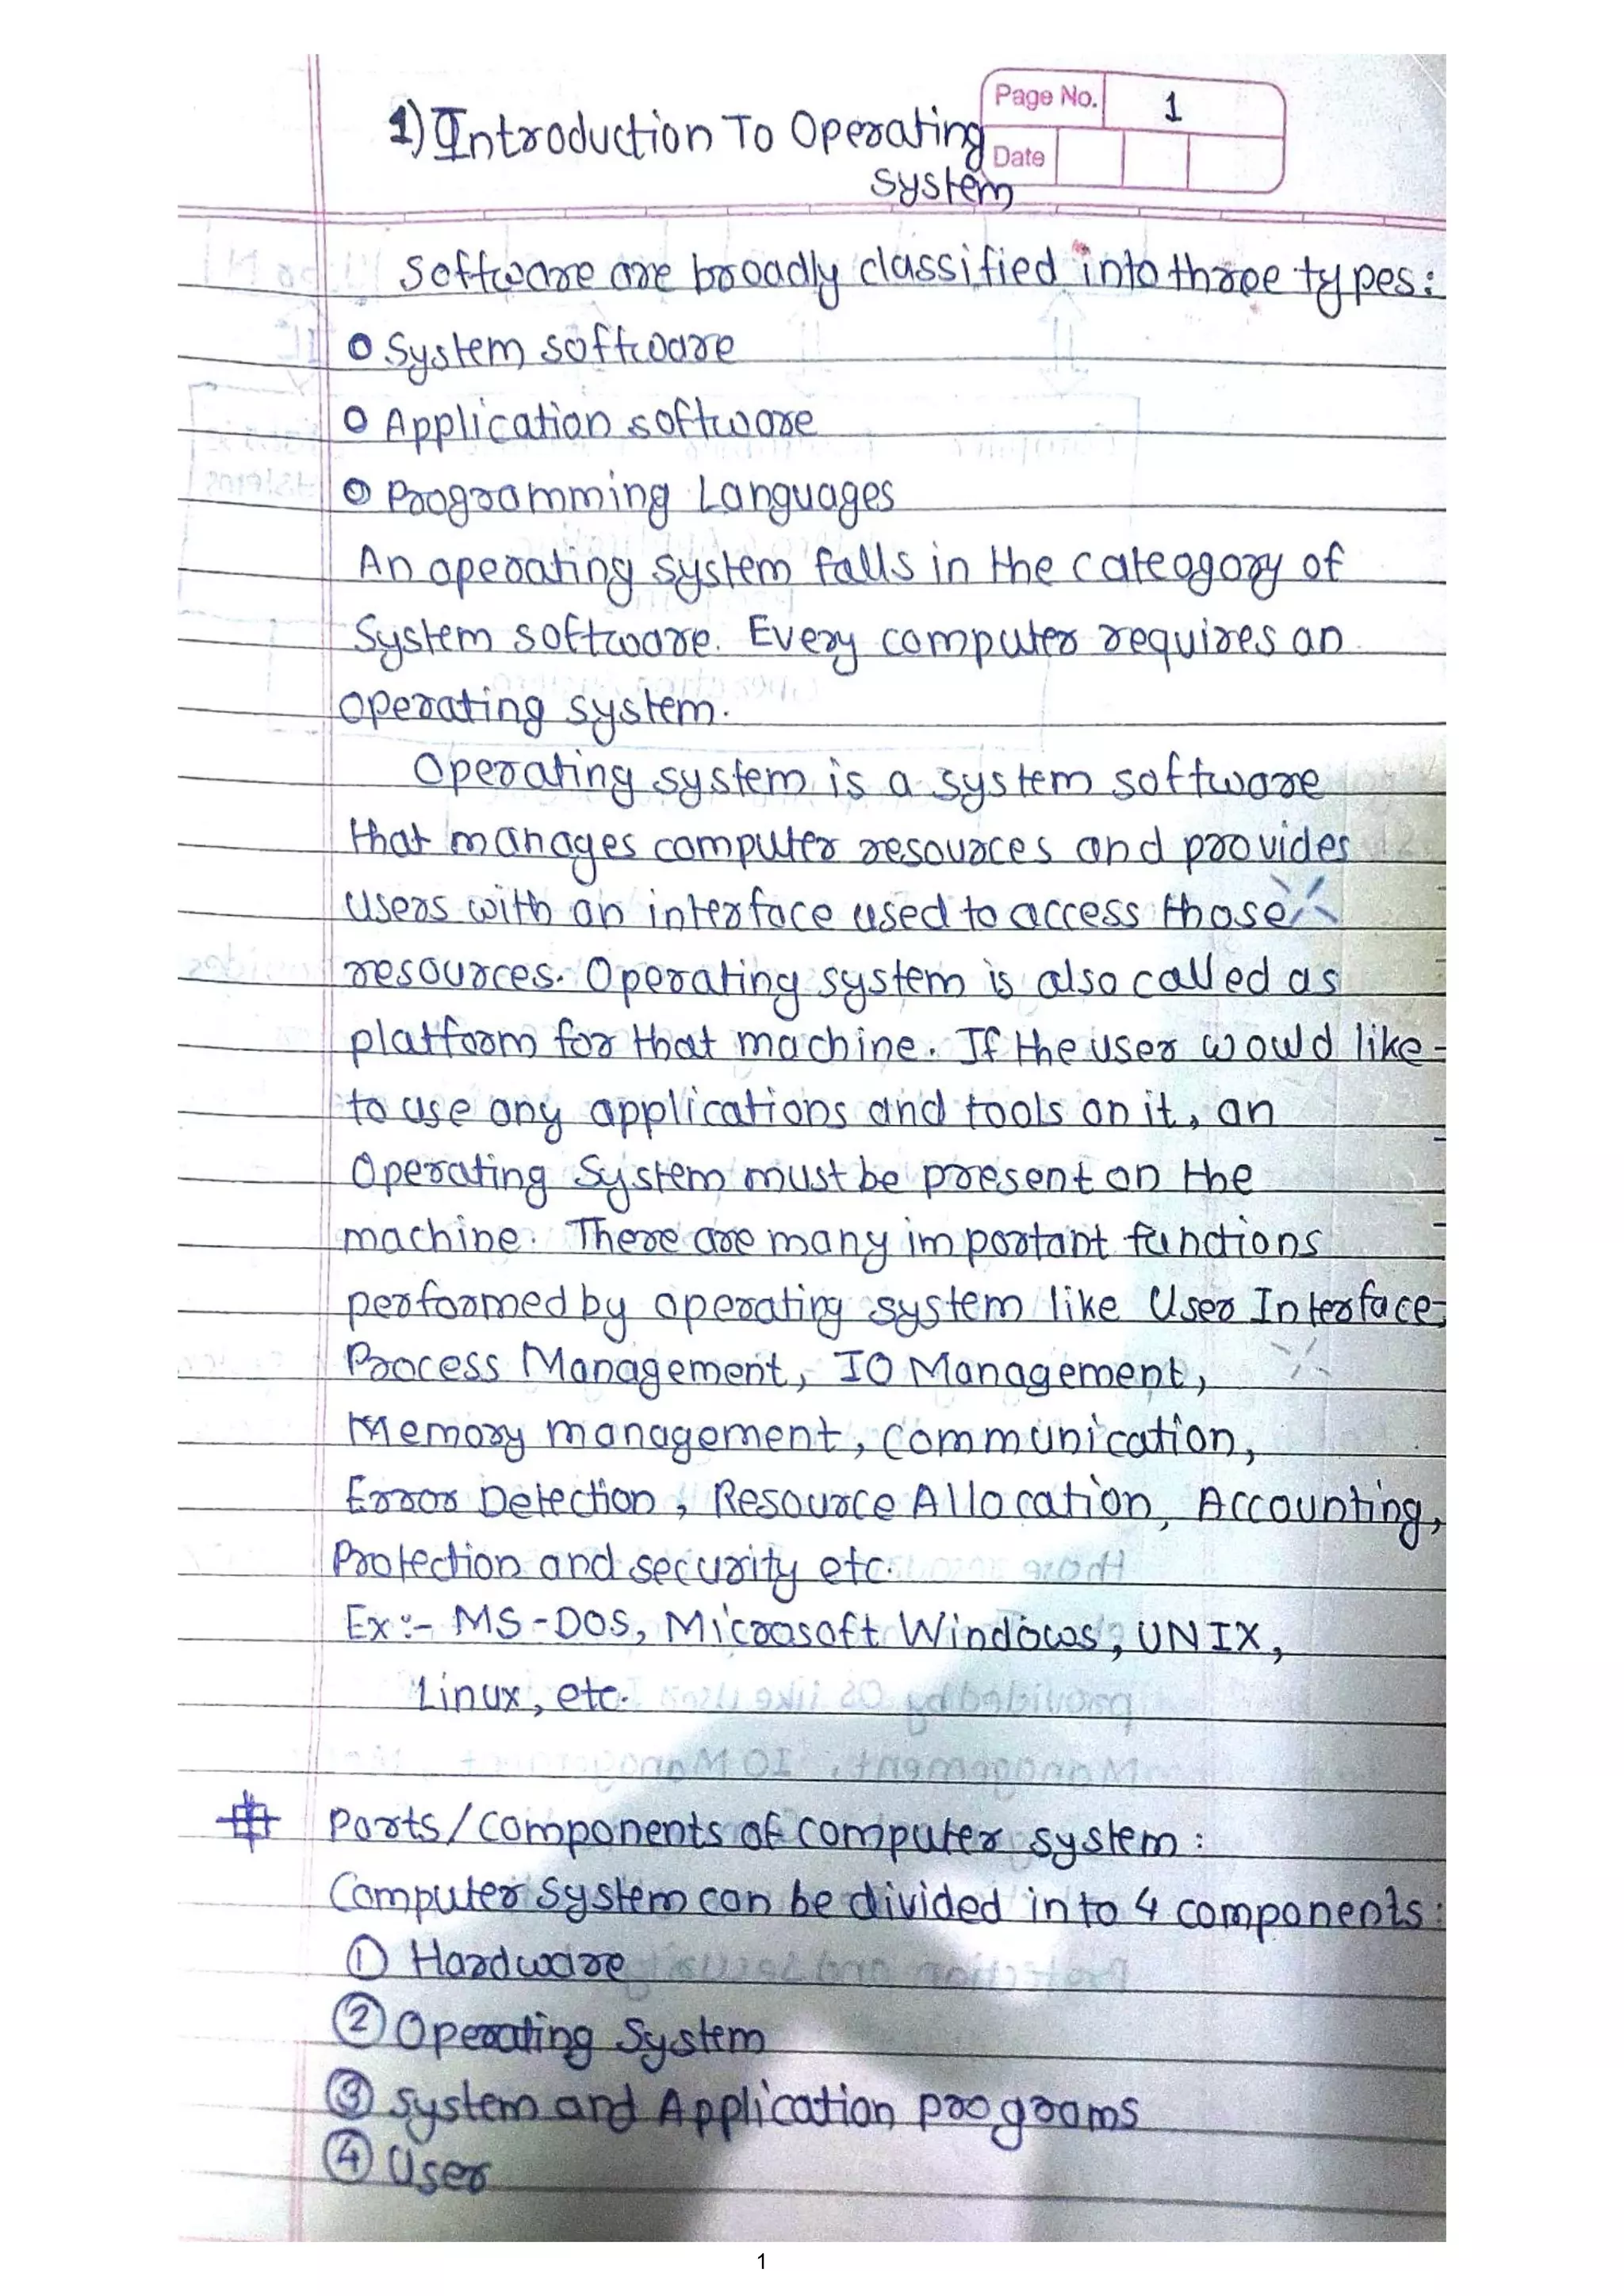 Page No. 1
1) Introduction To Operating
System
Date
Software are broadly classified into three types:
System software
Application software
Programming Languages
An operating system falls in the cateogory of
System software. Every computer requires an
operating system.
Operating system is a system software
that manages computer resources and provides
users with an interface used to access those
resources. Operating system is also called as
platform for that machine. If the user would like
to use any applications and tools on it, an
Operating System must be present on the
machine. There are many important functions
performed by operating system like User Interface,
Process Management, IO Management,
Memory management, Communication,
Error Detection, Resource Allocation, Accounting,
Protection and security etc.
Ex:- MS-DOS, Microsoft Windows, UNIX,
Linux, etc.
# Parts/Components of computer system:
Computer System can be divided into 4 components:
① Hardware
② Operating System
③ System and Application programs
④ User
1